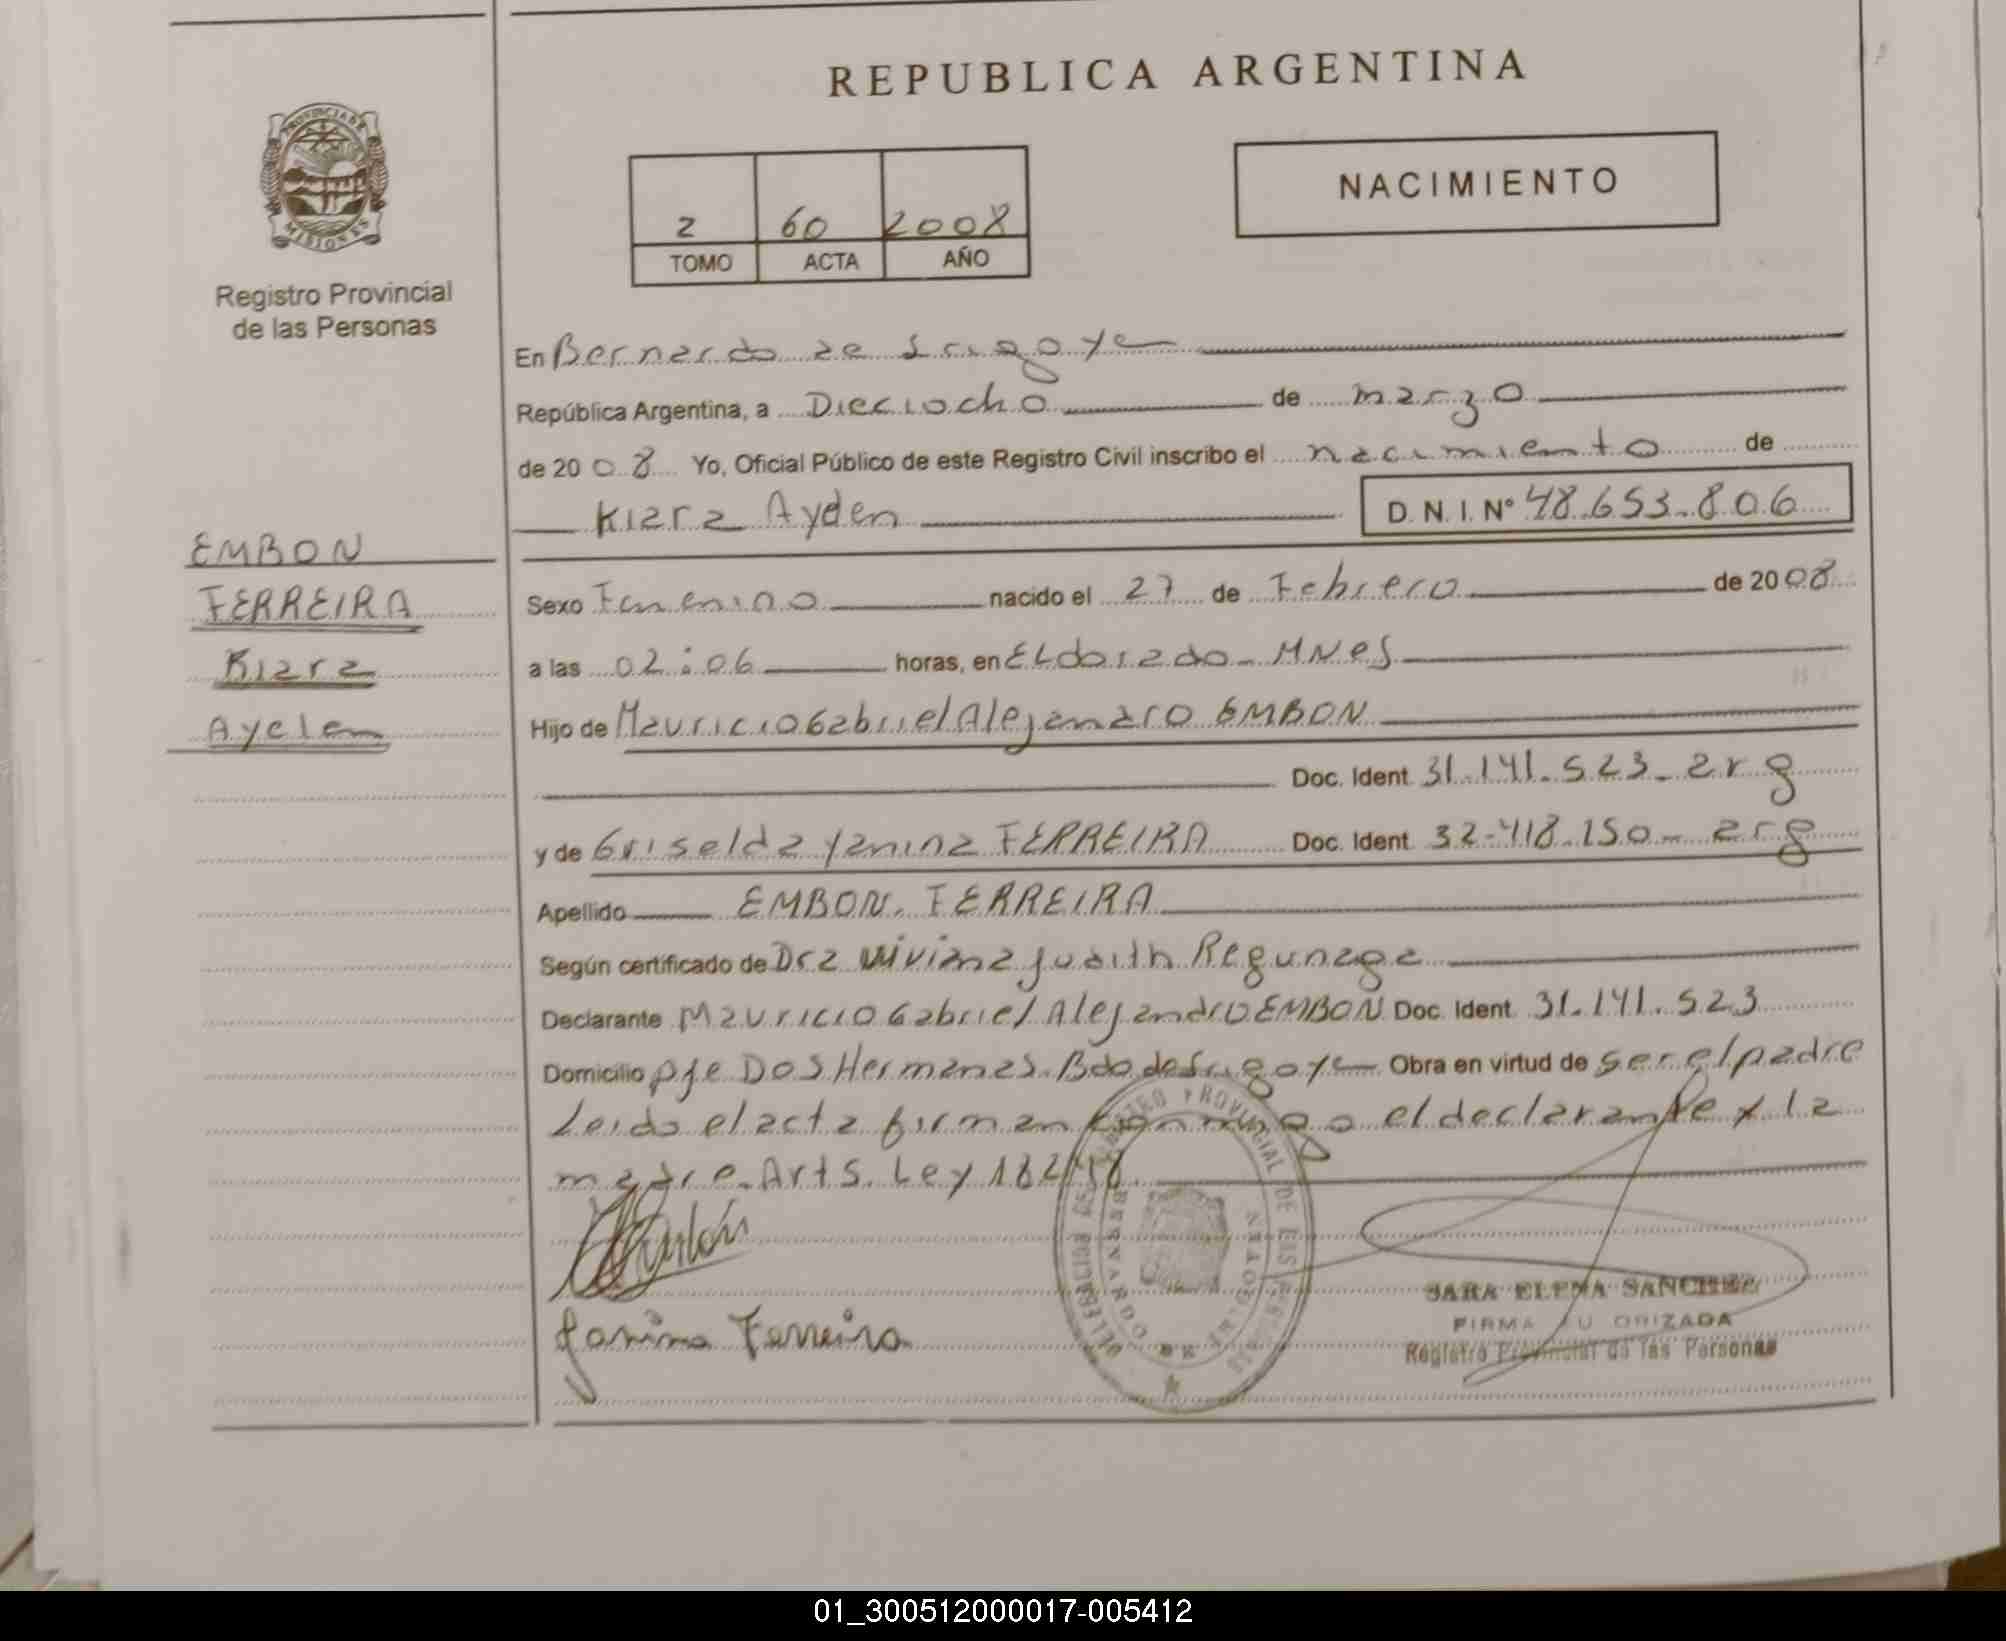 REPUBLICA ARGENTINA
PROVINCIA DE
MISIONES
Registro Provincial
de las Personas
2 60 2008
TOMO ACTA AÑO
NACIMIENTO
En Bernardo de Irigoyen
República Argentina, a Dieciocho de marzo
de 2008 Yo, Oficial Público de este Registro Civil inscribo el nacimiento de
Kiara Ayden D. N. I. Nº 48.653.806
EMBON
FERREIRA
Kiara
Ayelen
Sexo Femenino nacido el 27 de Febrero de 2008
a las 02:06 horas, en Eldorado - MNES
Hijo de Mauricio Gabriel Alejandro EMBON
Doc. Ident. 31.141.523 - arg
y de Griselda Yanina FERREIRA Doc. Ident. 32.418.150 - arg
Apellido EMBON. FERREIRA
Según certificado de Dra Viviana Judith Regunaga
Declarante Mauricio Gabriel Alejandro EMBON Doc. Ident. 31.141.523
Domicilio pje Dos Hermanas. Bdo de Irigoyen Obra en virtud de ser el padre
Leido el acta firman conmigo el declarante y la
madre. Art 5. Ley 18248.
Yanina Ferreira
REGISTRO PROVINCIAL DE LAS
DELEGACION
BERNARDO DE IRIGOYEN
SARA ELENA SANCHEZ
FIRMA AUTORIZADA
Registro Provincial de las Personas
01_300512000017-005412